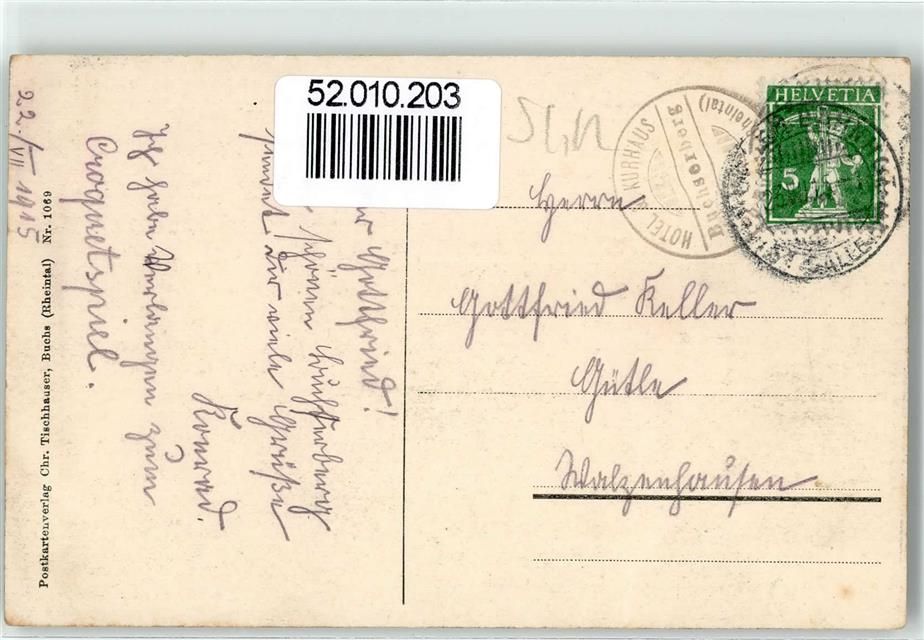 52.010.203
22./VII 1915
Gottfried!
schönen Buchserberg
viele Grüße
Konrad.
Ich habe Verlangen zum
Croquetspiel.
Postkartenverlag Chr. Tischhauser, Buchs (Rheintal) Nr. 1069
HOTEL KURHAUS
Buchserberg
(Rheintal)
HELVETIA
5
Herrn
Gottfried Keller
Gütle
Walzenhausen.